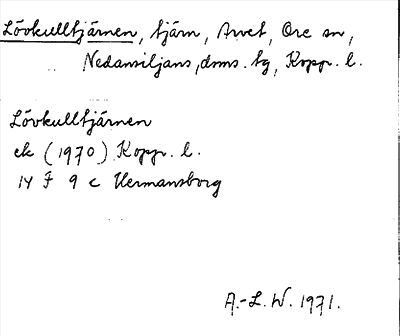 Lövkulltjärnen, tjärn, Arvet, Ore sn,
Nedansiljans, doms. tg, Kopp. l.
Lövkulltjärnen
ek (1970) Kopp. l.
14 F 9 c Hermansborg
A.-L. W. 1971.